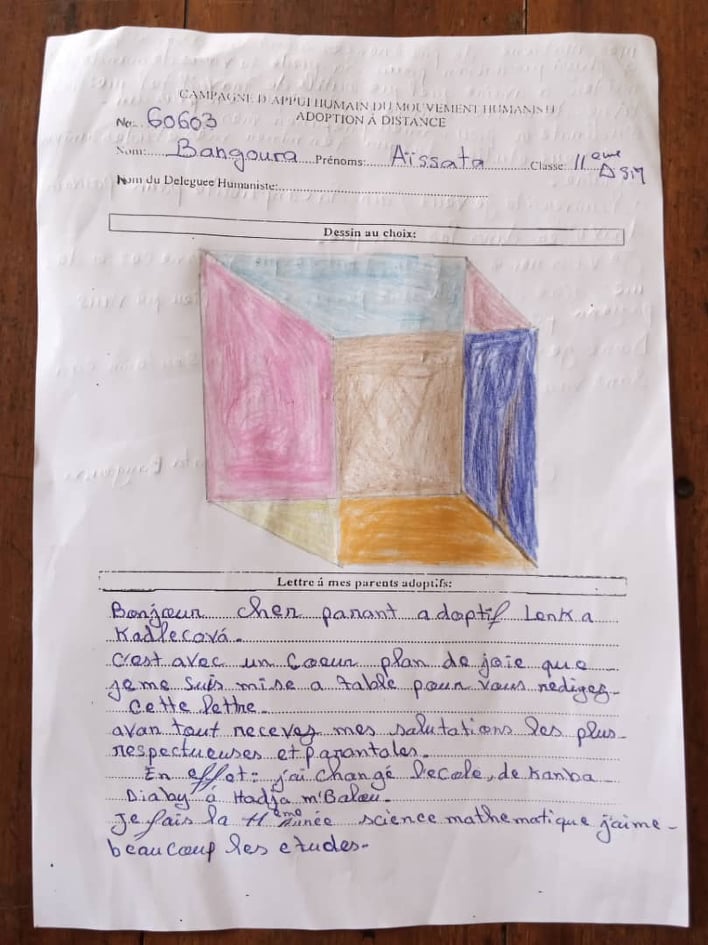 CAMPAGNE D'APPUI HUMAIN DU MOUVEMENT HUMANISTE
ADOPTION Á DISTANCE
No:.. 60603
Nom:...... Bangoura .... Prénoms:...... Aïssata ...... Classe: 11ème
DSM
Nom du Deleguee Humaniste:......
Dessin au choix:
Lettre á mes parents adoptifs:
Bonjour cher parant adoptif Lenka
Kadlecová.
C'est avec un Coeur plan de joie que
jeme suis mise a table pour vous redigez
Cette lettre.
avan tout recevez mes salutations les plus
respectueuses et parantales.
En effet: j'ai changé l'ecole, de Kanba
Diaby á Hadja m'Balou.
Je fais la 11ème année science mathematique j'aime
beaucoup les etudes.